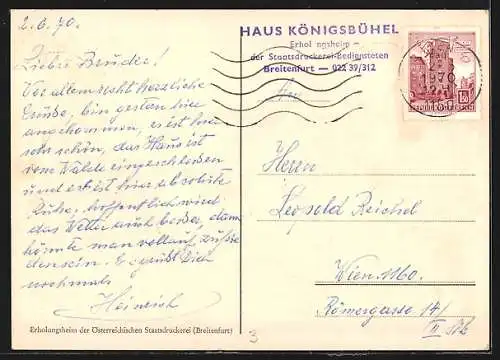 2.6.70.
Liebe Brüder!
Vor allem recht herzliche
Grüße, bin gestern hier
angekommen, es ist hier
sehr schön, das Haus ist
vom Walde eingeschlossen
und es ist hier absolute
Ruhe, hoffentlich wird
das Wetter auch besser, dann
könnte man vollauf zufrie
den sein. Es grüßt Dich
nochmals
Heinrich
Erholungsheim der Österreichischen Staatsdruckerei (Breitenfurt)
HAUS KÖNIGSBÜHEL
Erholungsheim
der Staatsdruckerei-Bediensteten
Breitenfurt — 022 39/312
1970
Herrn
Leopold Reichel
Wien 1160.
Römergasse 14/
II
3